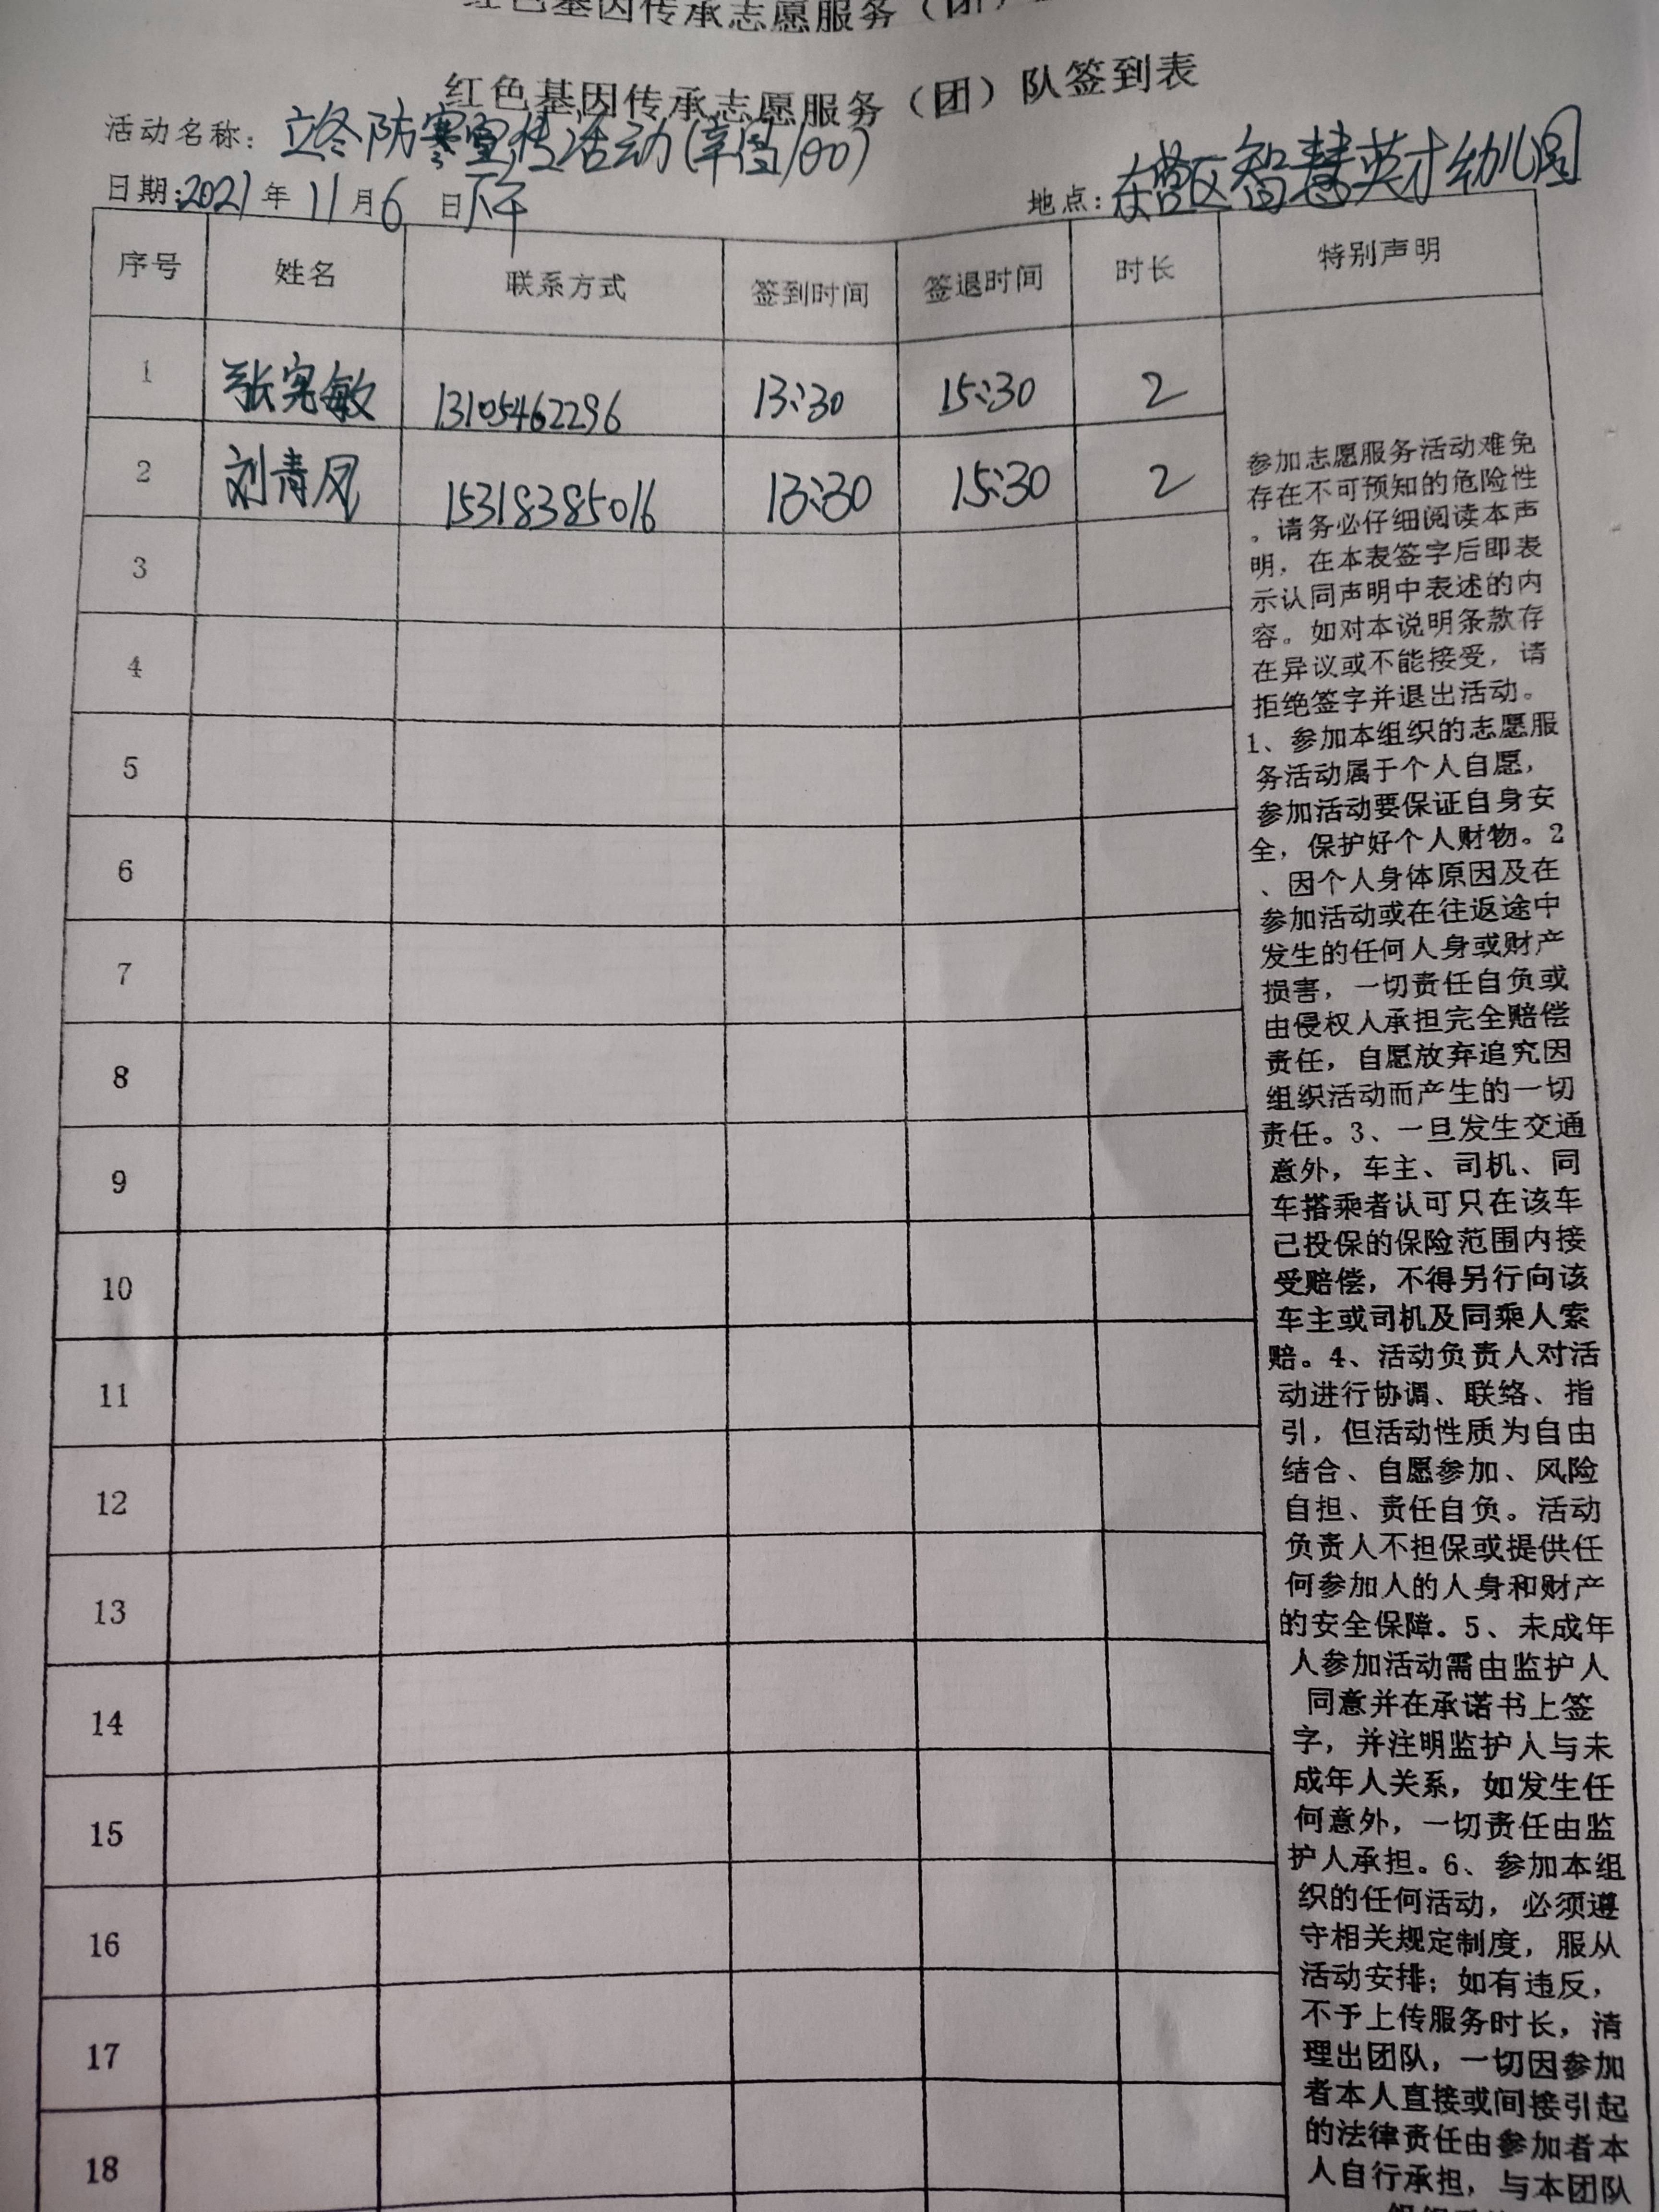 红色基因传承志愿服务（团）
红色基因传承志愿服务（团）队签到表
活动名称：立冬防寒宣传活动(幸福100)
日期：2021年11月6日下午 地点：东营区智慧英才幼儿园
序号 姓名 联系方式 签到时间 签退时间 时长 特别声明
1 张宪敏 13105462296 13:30 15:30 2
2 刘青凤 15318385016 13:30 15:30 2
3
4
5
6
7
8
9
10
11
12
13
14
15
16
17
18
参加志愿服务活动难免
存在不可预知的危险性
。请务必仔细阅读本声
明，在本表签字后即表
示认同声明中表述的内
容。如对本说明条款存
在异议或不能接受，请
拒绝签字并退出活动。
1、参加本组织的志愿服
务活动属于个人自愿，
参加活动要保证自身安
全，保护好个人财物。2
、因个人身体原因及在
参加活动或在往返途中
发生的任何人身或财产
损害，一切责任自负或
由侵权人承担完全赔偿
责任，自愿放弃追究因
组织活动而产生的一切
责任。3、一旦发生交通
意外，车主、司机、同
车搭乘者认可只在该车
已投保的保险范围内接
受赔偿，不得另行向该
车主或司机及同乘人索
赔。4、活动负责人对活
动进行协调、联络、指
引，但活动性质为自由
结合、自愿参加、风险
自担、责任自负。活动
负责人不担保或提供任
何参加人的人身和财产
的安全保障。5、未成年
人参加活动需由监护人
同意并在承诺书上签
字，并注明监护人与未
成年人关系，如发生任
何意外，一切责任由监
护人承担。6、参加本组
织的任何活动，必须遵
守相关规定制度，服从
活动安排；如有违反，
不予上传服务时长，清
理出团队，一切因参加
者本人直接或间接引起
的法律责任由参加者本
人自行承担，与本团队